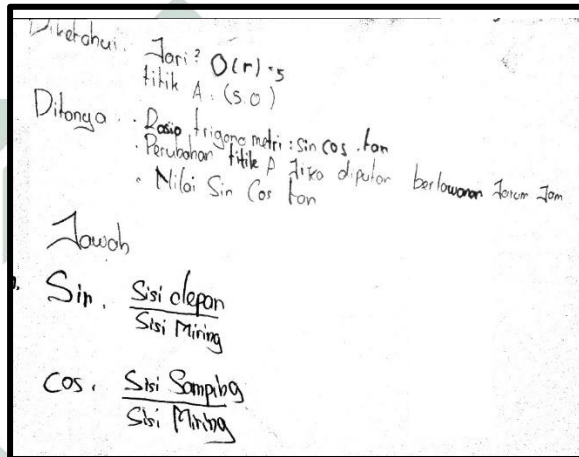 Diketahui. Jari² O(r) = 5
titik A. (5.0)
Ditanya . . Rasio trigonometri : sin cos . tan
. Perubahan titik A Jika diputar berlawanan Jarum Jam
. Nilai Sin Cos tan
Jawab
Sin . Sisi depan
Sisi Miring
COS . Sisi Samping
Sisi Miring